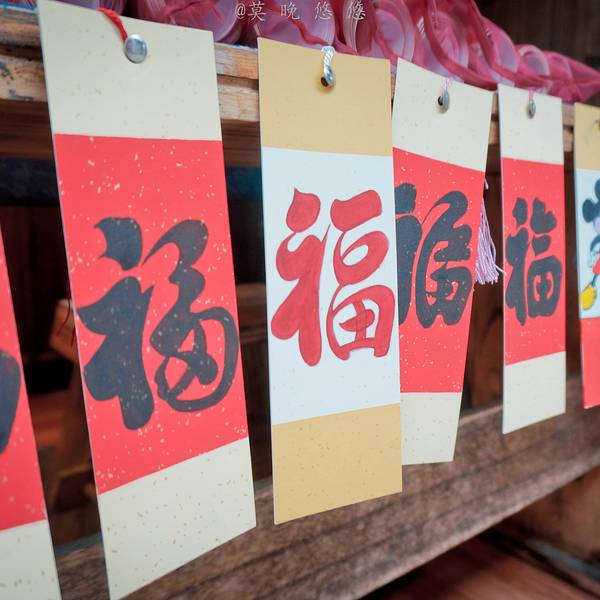 @莫晚悠悠
福
福
福
福